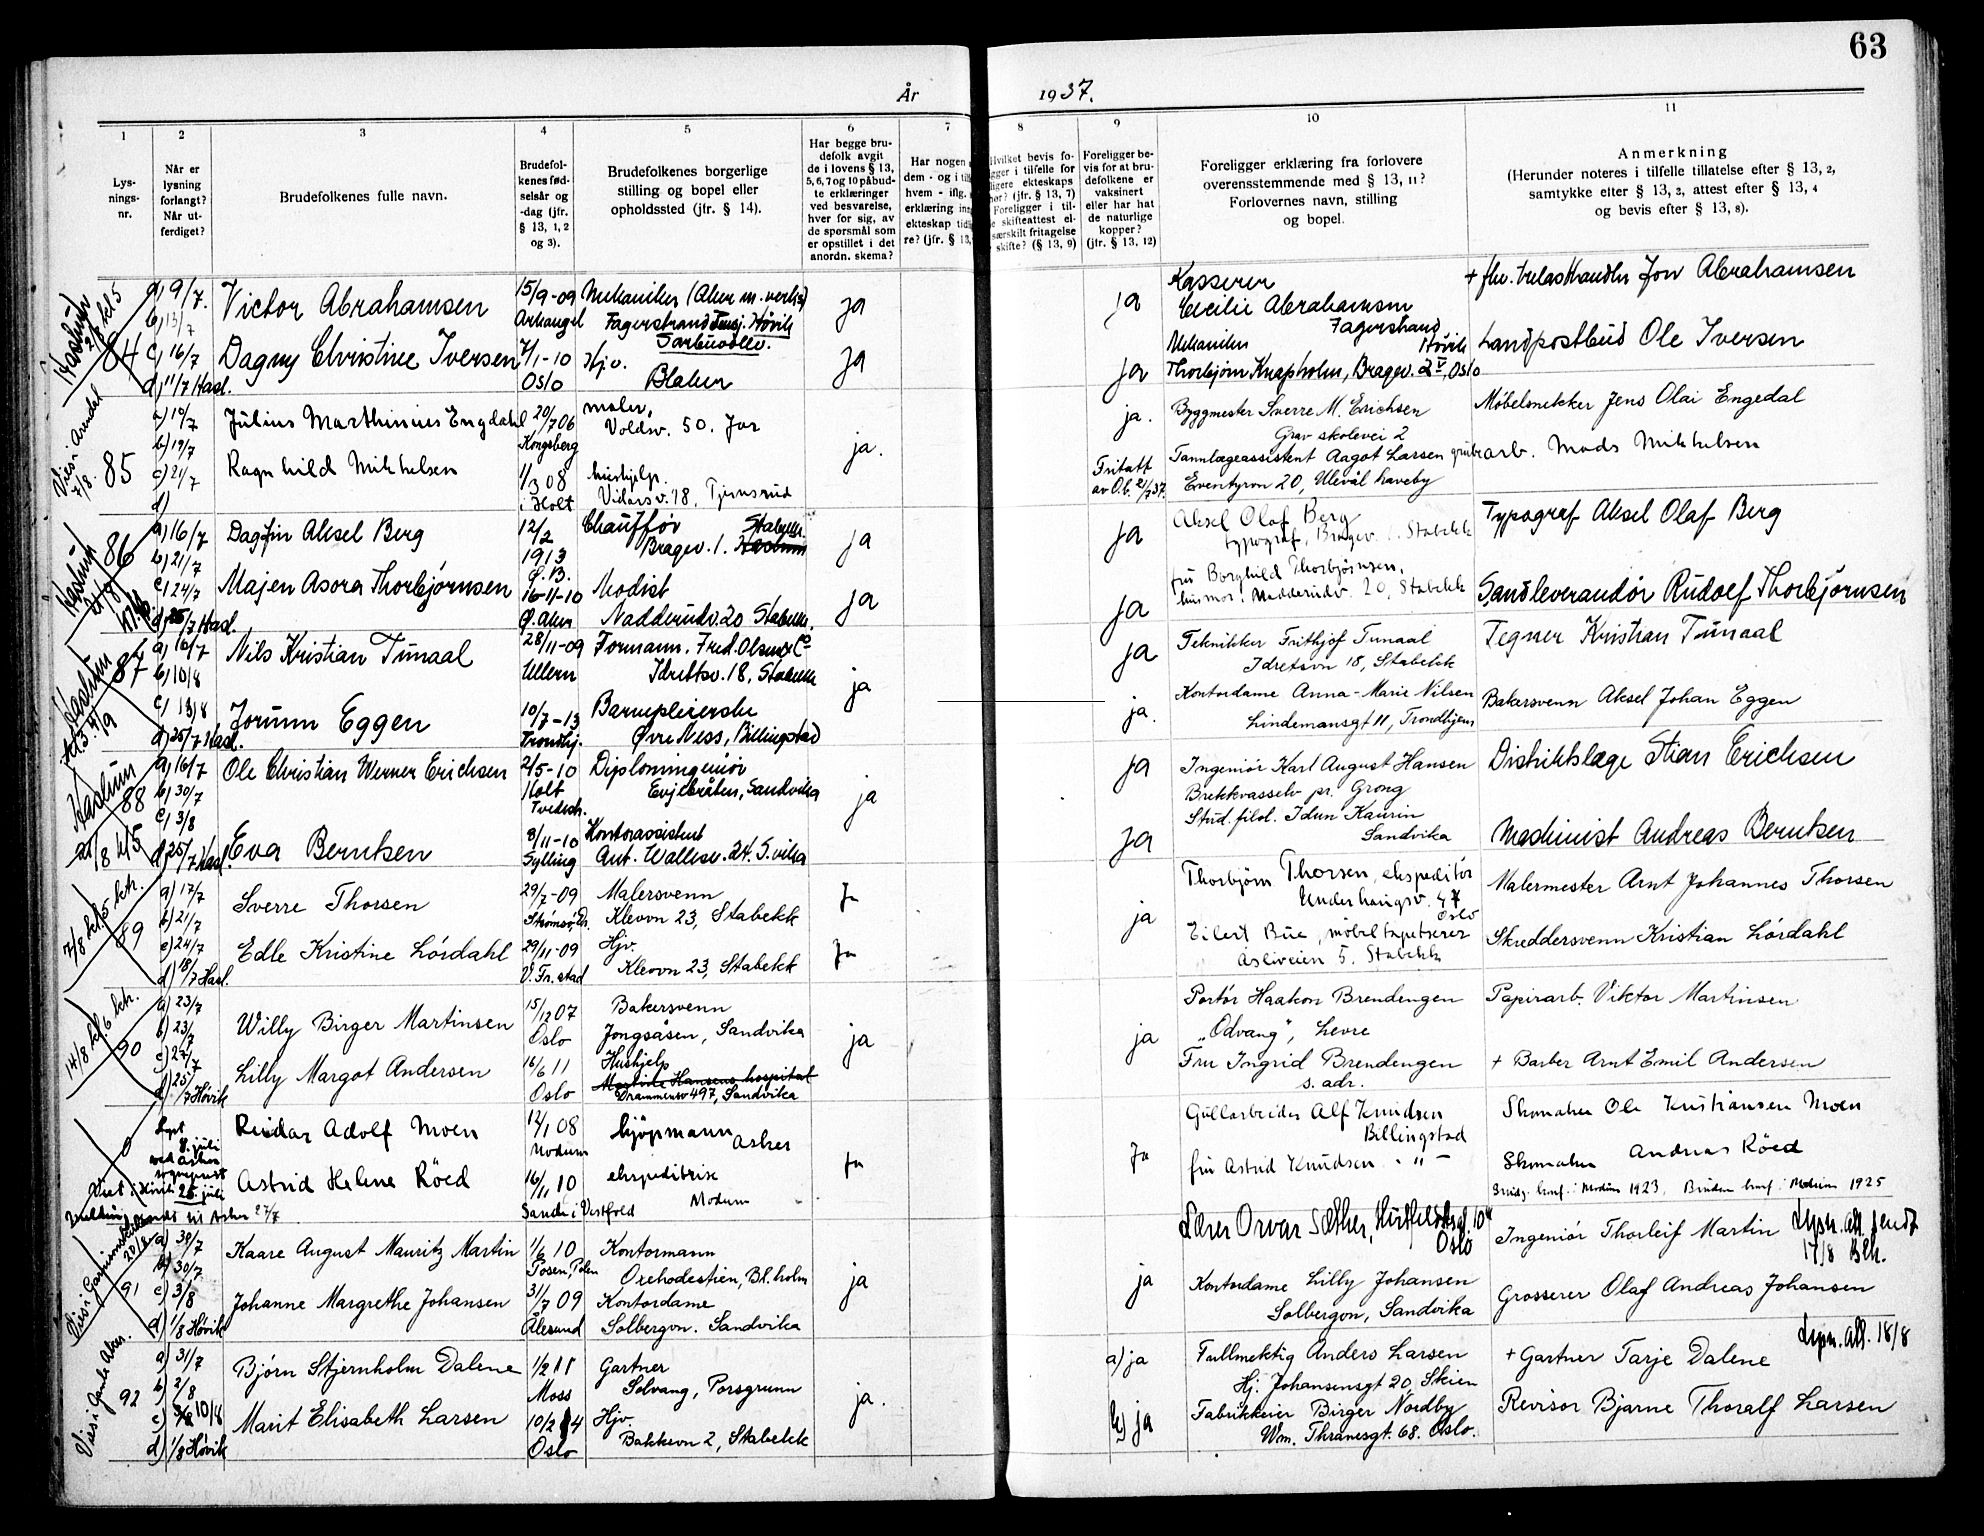 63
År
1937.
1 2 3 4 5 6 7 8 9 10 11
Lys-
nings-
nr.
Når er
lysning
forlangt?
Når ut-
ferdiget?
Brudefolkenes fulle navn.
Brudefol-
kenes fød-
selsår og
-dag (jfr.
§ 13, 1, 2
og 3).
Brudefolkenes borgerlige
stilling og bopel eller
opholdssted (jfr. § 14).
Har begge bru-
defolk avgit
de i lovens § 13,
5, 6, 7 og 10 påbud-
te erklæringer
ved besvarelse,
hver for sig, av
de spørsmål som
er opstillet i det
anordn. skema?
Har nogen
dem - og i
hvem - iflg.
erklæring
ekteskap
re? (jfr. § 13,
Hvilket bevis fo-
ligger i tilfelle for
ekteskaps
(jfr. § 13, 7)
Foreligger i til-
skifteattest el-
særskilt fritagelse
skifte? (§ 13, 9)
Foreligger be-
vis for at bru-
defolkene er
vaksinert
eller har hat
de naturlige
kopper?
(jfr. § 13, 12)
Foreligger erklæring fra forlovere
overensstemmende med § 13, 11?
Forlovernes navn, stilling
og bopel.
Anmerkning
(Herunder noteres i tilfelle tillatelse efter § 13, 2,
samtykke efter § 13, 3, attest efter § 13, 4
og bevis efter § 13, 8).
Haslum
84
a) 9/7.
b) 13/7
c) 16/7
d) 11/7 Hasl.
Victor Abrahamsen
15/9-09
Arkangel
Mekaniker (Aker m. verks.)
Fagerstrand Høvik
ja
ja
Kasserer
Cecilie Abrahamsen
Fagerstrand
Høvik
+ fhv. trelasthandler Jon Abrahamsen
Dagny Christine Iversen
7/1-10
Oslo
Hjv.
Blaker
ja
ja
Mekaniker
Thorbjørn Knapholm, Bragev. 2 V, Oslo
Landpostbud Ole Iversen
Vies i Arendal
7/8.
85
a) 19/7
b) 19/7
c) 21/7
d)
Julius Marthinius Engdahl
20/7 06
Kongsberg
maler,
Voldsv. 50. Jar
ja.
ja.
Byggmester Sverre M. Erichsen
Grav skolevei 2
Møbelsnekker Jens Olai Engedal
Ragnhild Mikkelsen
1/3 08
i Holt
hushjelp.
Vidarsv. 18, Tjernsrud
Fritatt
av O.l. 21/7 37.
Tannlægeassistent Aagot Larsen
Eventyrvn 20, Ulevål haveby
grubearb. Mads Mikkelsen
Haslum
86
a) 16/7
b) 21/7
c) 24/7
d) 25/7 Hasl.
Dagfin Aksel Berg
12/2
1913
Chauffør
Bragev. 1. Stabekk
ja
ja
Aksel Olaf Berg
typograf, Bragev. Stabekk
Typograf Aksel Olaf Berg
Majen Asora Thorbjørnsen
16-11-10
Ø. Aker
Modist
Nadderudv. 20 Stabekk.
ja
ja
fru Borghild Thorbjørnsen,
husmor, Nadderudv. 20, Stabekk
Sandleverandør Rudolf Thorbjørnsen
Haslum
4/9
87
a) 16/7
b) 10/8
c) 13/8
d) 25/7 Hasl.
Nils Kristian Tunaal
28/11-09
Ullern
Formann, Fred. Olsen & Co
Idrettsv. 18, Stabekk
ja
ja
Tekniker Frithjof Tunaal
Idretsvn 18, Stabekk
Tegner Kristian Tunaal
Jorunn Eggen
10/7-13
Trondhj.
Barnepleierske
Øvre Ness, Billingstad
ja.
Kontordame Anna-Marie Nilsen
Lindemansgt 11, Trondhjem
Bakersvenn Aksel Johan Eggen
Haslum
88
a) 16/7
b) 30/7
c) 3/8
d) 25/7 Hasl.
Ole Christian Werner Erichsen
2/5-10
Holt
Tvedestr.
Diplomingeniør
Evjebråten, Sandvika
ja
ja
Ingeniør Karl August Hansen
Brekkvasselv pr. Grong
Distriktslæge Stian Erichsen
Eva Berntsen
8/11-10
Sylling
Kontorassistent
Ant. Wallesv. 24. S.vika
ja
Stud. filol. Idun Kaurin
Sandvika
Maskinist Andreas Berntsen
7/8 kl. 5 ktr.
89
a) 17/7
b) 21/7
c) 24/7
d) 18/7 Hasl.
Sverre Thorsen
29/7-09
Strømsø, Dr.
Malersvenn
Kleivn 23, Stabekk
Ja
ja
Thorbjørn Thorsen, ekspeditør
Underhaugsv. 47
Oslo
Malermester Arnt Johannes Thorsen
Edle Kristine Lørdahl
29/11-09
V. Fr.stad
Hjv.
Kleivn 23, Stabekk
Ja
Eilert Bue, møbeltapetserer
Asliveien 5. Stabekk
Skreddersvenn Kristian Lørdahl
14/8 kl. 6 ktr.
90
a) 23/7
b) 23/7
c) 27/7
d) 25/7 Høvik
Willy Birger Martinsen
15/12 07
Oslo
Bakersvenn
Jongsåsen, Sandvika
ja
ja
Portør Haakon Brendengen
"Odvang", Levre
Papirarb. Viktor Martinsen
Lilly Margot Andersen
16/6 11
Oslo
Hushjelp
Martina Hansens hospital
Drammensv 497, Sandvika
Fru Ingrid Brendengen
s. adr.
+ Barber Arnt Emil Andersen
0
Lyst
8. juli
ved Asker
sogneprest
25. juli
Reidar Adolf Moen
12/1 08
Modum
kjøpmann
Asker
ja
Ja
Gullarbeider Alf Knudsen
Billingstad
Skomaker Ole Kristiansen Moen
Astrid Helene Röed
16/11 10
Sande i Vestfold
ekspeditrise
Modum
fru Astrid Knudsen - " -
Skomaker Andreas Röed
Brudg. konf. i Modum 1923. Bruden konf. i Modum 1925
91
a) 30/7
b) 30/7
c) 3/8
d) 1/8 Høvik
Kaare August Mauritz Martin
1/6 10
Posen, Polen
Kontormann
Orehodestien, Bl.holm
ja
ja
Lærer Orvar Sæther, Huitfeldtsgt. 10
Oslo
Ingeniør Thorleif Martin
Lysn. att. sendt
17/8 Blk.
Johanne Margrethe Johansen
31/7 09
Ålesund
Kontordame
Solbergvn. Sandvika
Kontordame Lilly Johansen
Solbergvn, Sandvika
Grosserer Olaf Andreas Johansen
Vies i Gamle Aker.
92
a) 31/7
b) 2/8
c) 10/8
d) 1/8 Høvik
Bjørn Stjernholm Dalene
1/2 11
Moss
Gartner
Solvang, Porsgrunn
ja.
a) ja
Fullmektig Anders Larsen
Hj. Johansensgt 20, Skien
+ Gartner Tarje Dalene
Lysn. att. 18/8
Marit Elisabeth Larsen
10/2 14
Oslo
Hjv.
Bakkevn 2, Stabekk
b) ja
Fabrikkeier Birger Nordby
Wm. Thranesgt. 68. Oslo.
Revisor Bjarne Thoralf Larsen